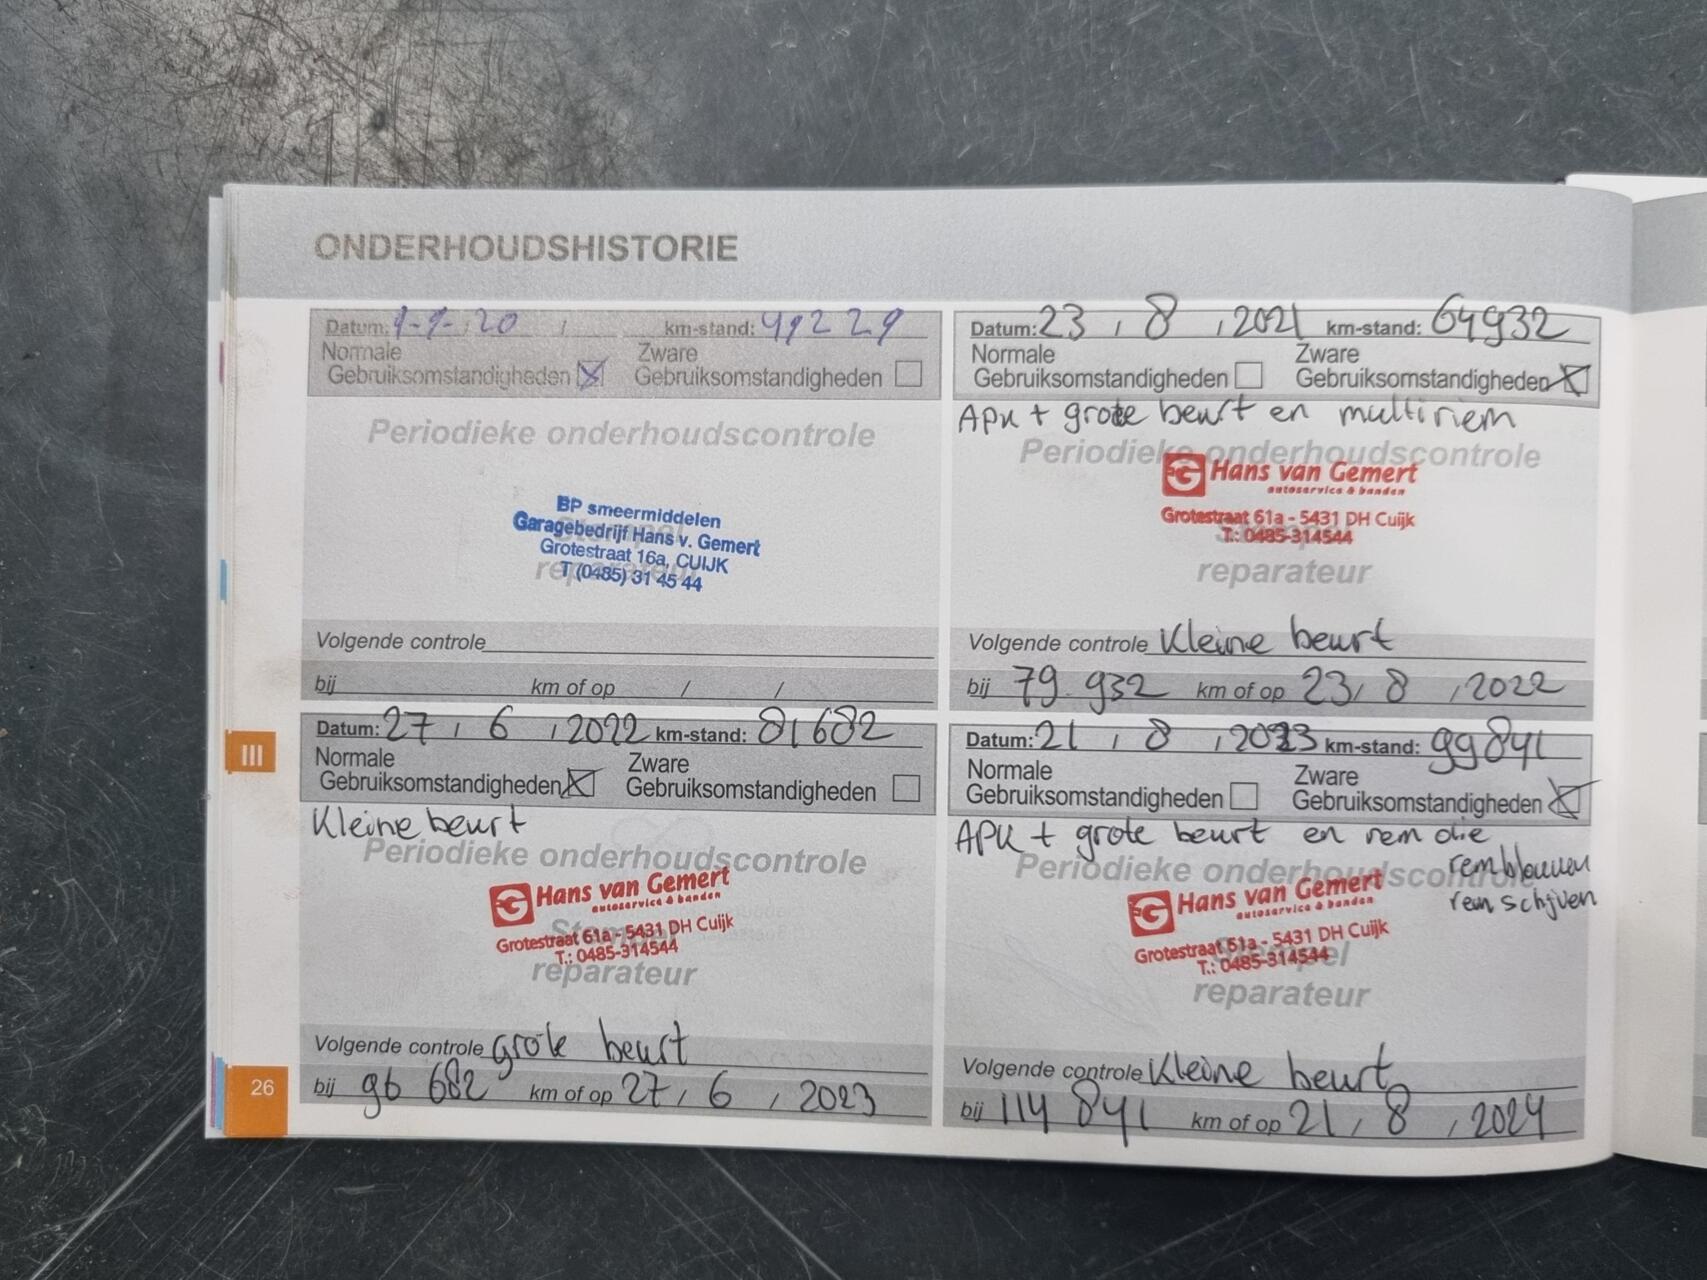 ONDERHOUDSHISTORIE
Datum: 1-9-20 / km-stand: 41229
Normale Zware
Gebruiksomstandigheden Gebruiksomstandigheden
Periodieke onderhoudscontrole
BP smeermiddelen
Garagebedrijf Hans v. Gemert
Stempel
Grotestraat 16a, CUIJK
reparateur
T (0485) 31 45 44
Volgende controle
bij km of op / /
Datum: 23 / 8 / 2021 km-stand: 64932
Normale Zware
Gebruiksomstandigheden Gebruiksomstandigheden
APK + grote beurt en multiriem
Periodieke onderhoudscontrole
Hans van Gemert
autoservice & banden
Grotestraat 61a - 5431 DH Cuijk
Stempel
T.: 0485-314544
reparateur
Volgende controle Kleine beurt
bij 79.932 km of op 23 / 8 / 2022
III
Datum: 27 / 6 / 2022 km-stand: 81682
Normale Zware
Gebruiksomstandigheden Gebruiksomstandigheden
Kleine beurt
Periodieke onderhoudscontrole
Hans van Gemert
autoservice & banden
Stempel
Grotestraat 61a - 5431 DH Cuijk
T.: 0485-314544
reparateur
Volgende controle grote beurt
bij 96 682 km of op 27 / 6 / 2023
Datum: 21 / 8 / 2023 km-stand: 99841
Normale Zware
Gebruiksomstandigheden Gebruiksomstandigheden
APK + grote beurt en rem die
remblokken
rem schijven
Periodieke onderhoudscontrole
Hans van Gemert
autoservice & banden
Grotestraat 61a - 5431 DH Cuijk
Stempel
T.: 0485-314544
reparateur
Volgende controle Kleine beurt
bij 114 841 km of op 21 / 8 / 2024
26